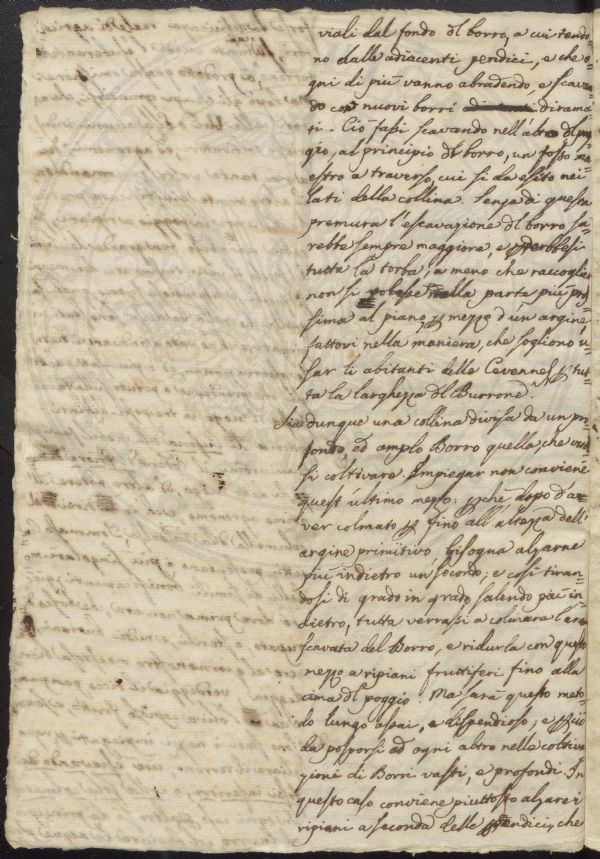 viali dal fondo dl borro, a cui tendo=
no dalle adiacenti pendici, e che o=
gni di più vanno abradendo, e scavan
do con nuovi borri dirama=
ti. Ciò fassi scavando nell'alto dl pog
gio, al principio dl borro, un fosso ma
estro a traverso, cui si da esito nei
lati della collina. Senza di questa
premura l'escavazione dl borro sa=
rebbe sempre maggiore, e perderebbesi
tutta la torba, a meno che raccoglier
non si volesse nella parte più pros
sima al piano p mezzo d'un argine
fattovi nella maniera, che sogliono u=
sar li abitanti delle Cevennes p tut=
ta la larghezza dl Burrone.
Sia dunque una collina divisa da un pro
fondo, ed amplo Borro quella, che vuol
si coltivare. Impiegar non conviene
quest'ultimo mezzo: pchè dopo d'a=
ver colmato p fino all'altezza dell'
argine primitivo, bisogna alzarne
più indietro un secondo; e così tiran=
dosi di grado in grado salendo più in=
dietro, tutta verrassi a colmare l'area
scavata del Borro, e ridurla con questo
mezzo a ripiani fruttiferi fino alla
cima dl poggio. Ma sarà questo meto=
do lungo assai, e dispendioso; e pciò
da posporsi ad ogni altro nelle coltiva
zioni di Borri vasti, e profondi. In
questo caso conviene piuttosto alzare i
ripiani a seconda delle pendici, che